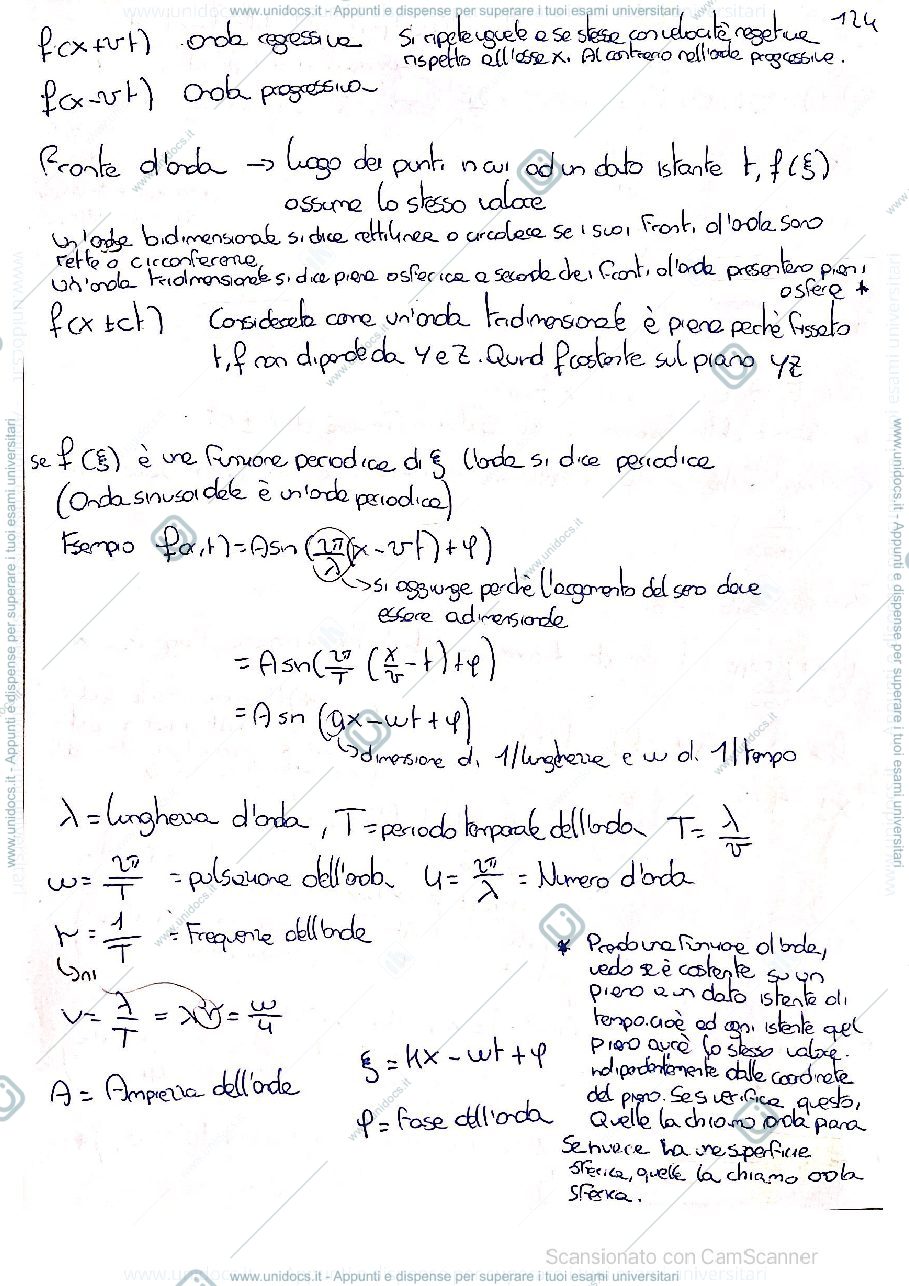 www.unidocs.it - Appunti e dispense per superare i tuoi esami universitari
124
f(x+vt) onda regressiva si ripete uguale a se stessa con velocità negativa
rispetto all'asse x. Al contrario nell'onda progressiva.
f(x-vt) Onda progressiva
Fronte d'onda → luogo dei punti in cui ad un dato istante t, f(ξ)
assume lo stesso valore
Un'onda bidimensionale si dice rettilinea o circolare se i suoi fronti d'onda sono
rette o circonferenze
Un'onda tridimensionale si dice piana o sferica a seconda che i fronti d'onda presentano piani
o sfere *
f(x±ct) Considerata come un'onda tridimensionale è piana perchè fissato
t, f non dipende da Y e Z. Quind f costante sul piano YZ
se f(ξ) è una funzione periodica di ξ l'onda si dice periodica
(Onda sinusoidale è un'onda periodica)
Esempio f(x,t)=Asin(2π/λ(x-vt)+φ)
→ si aggiunge perchè l'argomento del seno deve
essere adimensionale
= Asin(2π/T (x/v - t)+φ)
= Asin (ux-wt+φ)
→ dimensione di 1/lunghezza e w di 1/tempo
λ = lunghezza d'onda, T = periodo temporale dell'onda T= λ/v
w= 2π/T = pulsazione dell'onda u= 2π/λ = Numero d'onda
ν = 1/T = Frequenza dell'onda
→ ni
v= λ/T = λν = w/u
A = Ampiezza dell'onda
ξ = Kx - wt + φ
φ = fase dell'onda
* Prendo una funzione d'onda,
vedo se è costante su un
piano a un dato istante di
tempo. cioè ad ogni istante quel
piano avrà lo stesso valore.
indipendentemente dalle coordinate
del piano. Se si verifica questo,
Quella la chiamo onda piana
Se invece ha una superficie
sferica, quella la chiamo onda
sferica.
Scansionato con CamScanner
www.unidocs.it - Appunti e dispense per superare i tuoi esami universitari